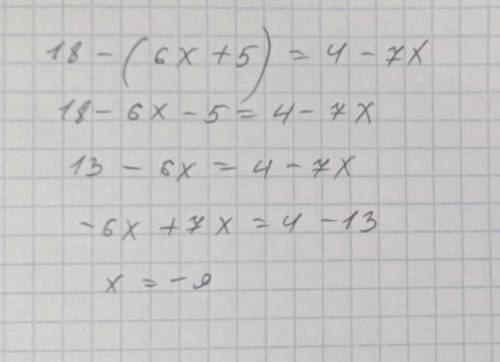 18 - (6x + 5) = 4 - 7x
18 - 6x - 5 = 4 - 7x
13 - 6x = 4 - 7x
-6x + 7x = 4 - 13
x = -9